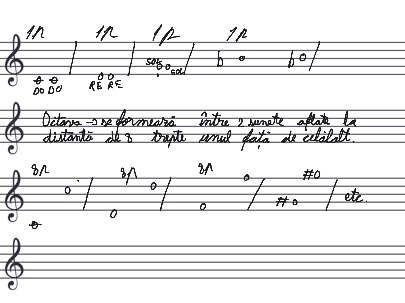 1P 1P 1P 1P
DO DO RE RE sol sol
Octava → se formează între 2 sunete aflate la
distanță de 8 trepte unul față de celălalt.
8P 8P 8P
etc.